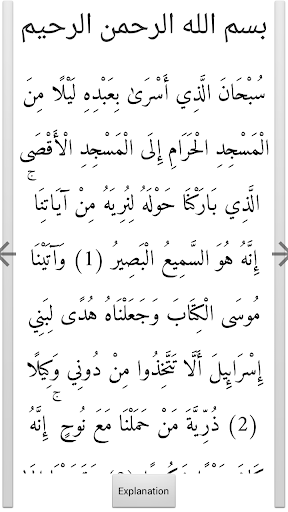 بسم الله الرحمن الرحيم
سُبْحَانَ الَّذِي أَسْرَىٰ بِعَبْدِهِ لَيْلًا مِنَ
الْمَسْجِدِ الْحَرَامِ إِلَى الْمَسْجِدِ الْأَقْصَى
الَّذِي بَارَكْنَا حَوْلَهُ لِنُرِيَهُ مِنْ آيَاتِنَا ۚ
إِنَّهُ هُوَ السَّمِيعُ الْبَصِيرُ (1) وَآتَيْنَا
مُوسَى الْكِتَابَ وَجَعَلْنَاهُ هُدًى لِبَنِي
إِسْرَائِيلَ أَلَّا تَتَّخِذُوا مِنْ دُونِي وَكِيلًا
(2) ذُرِّيَّةَ مَنْ حَمَلْنَا مَعَ نُوحٍ ۚ إِنَّهُ
Explanation